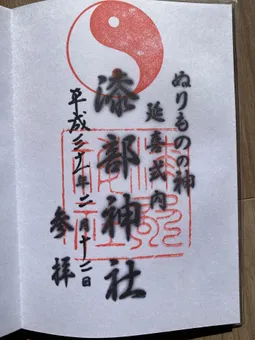 ぬりものの神
延喜式内
漆部神社
平成三十年二月十二日
参拝